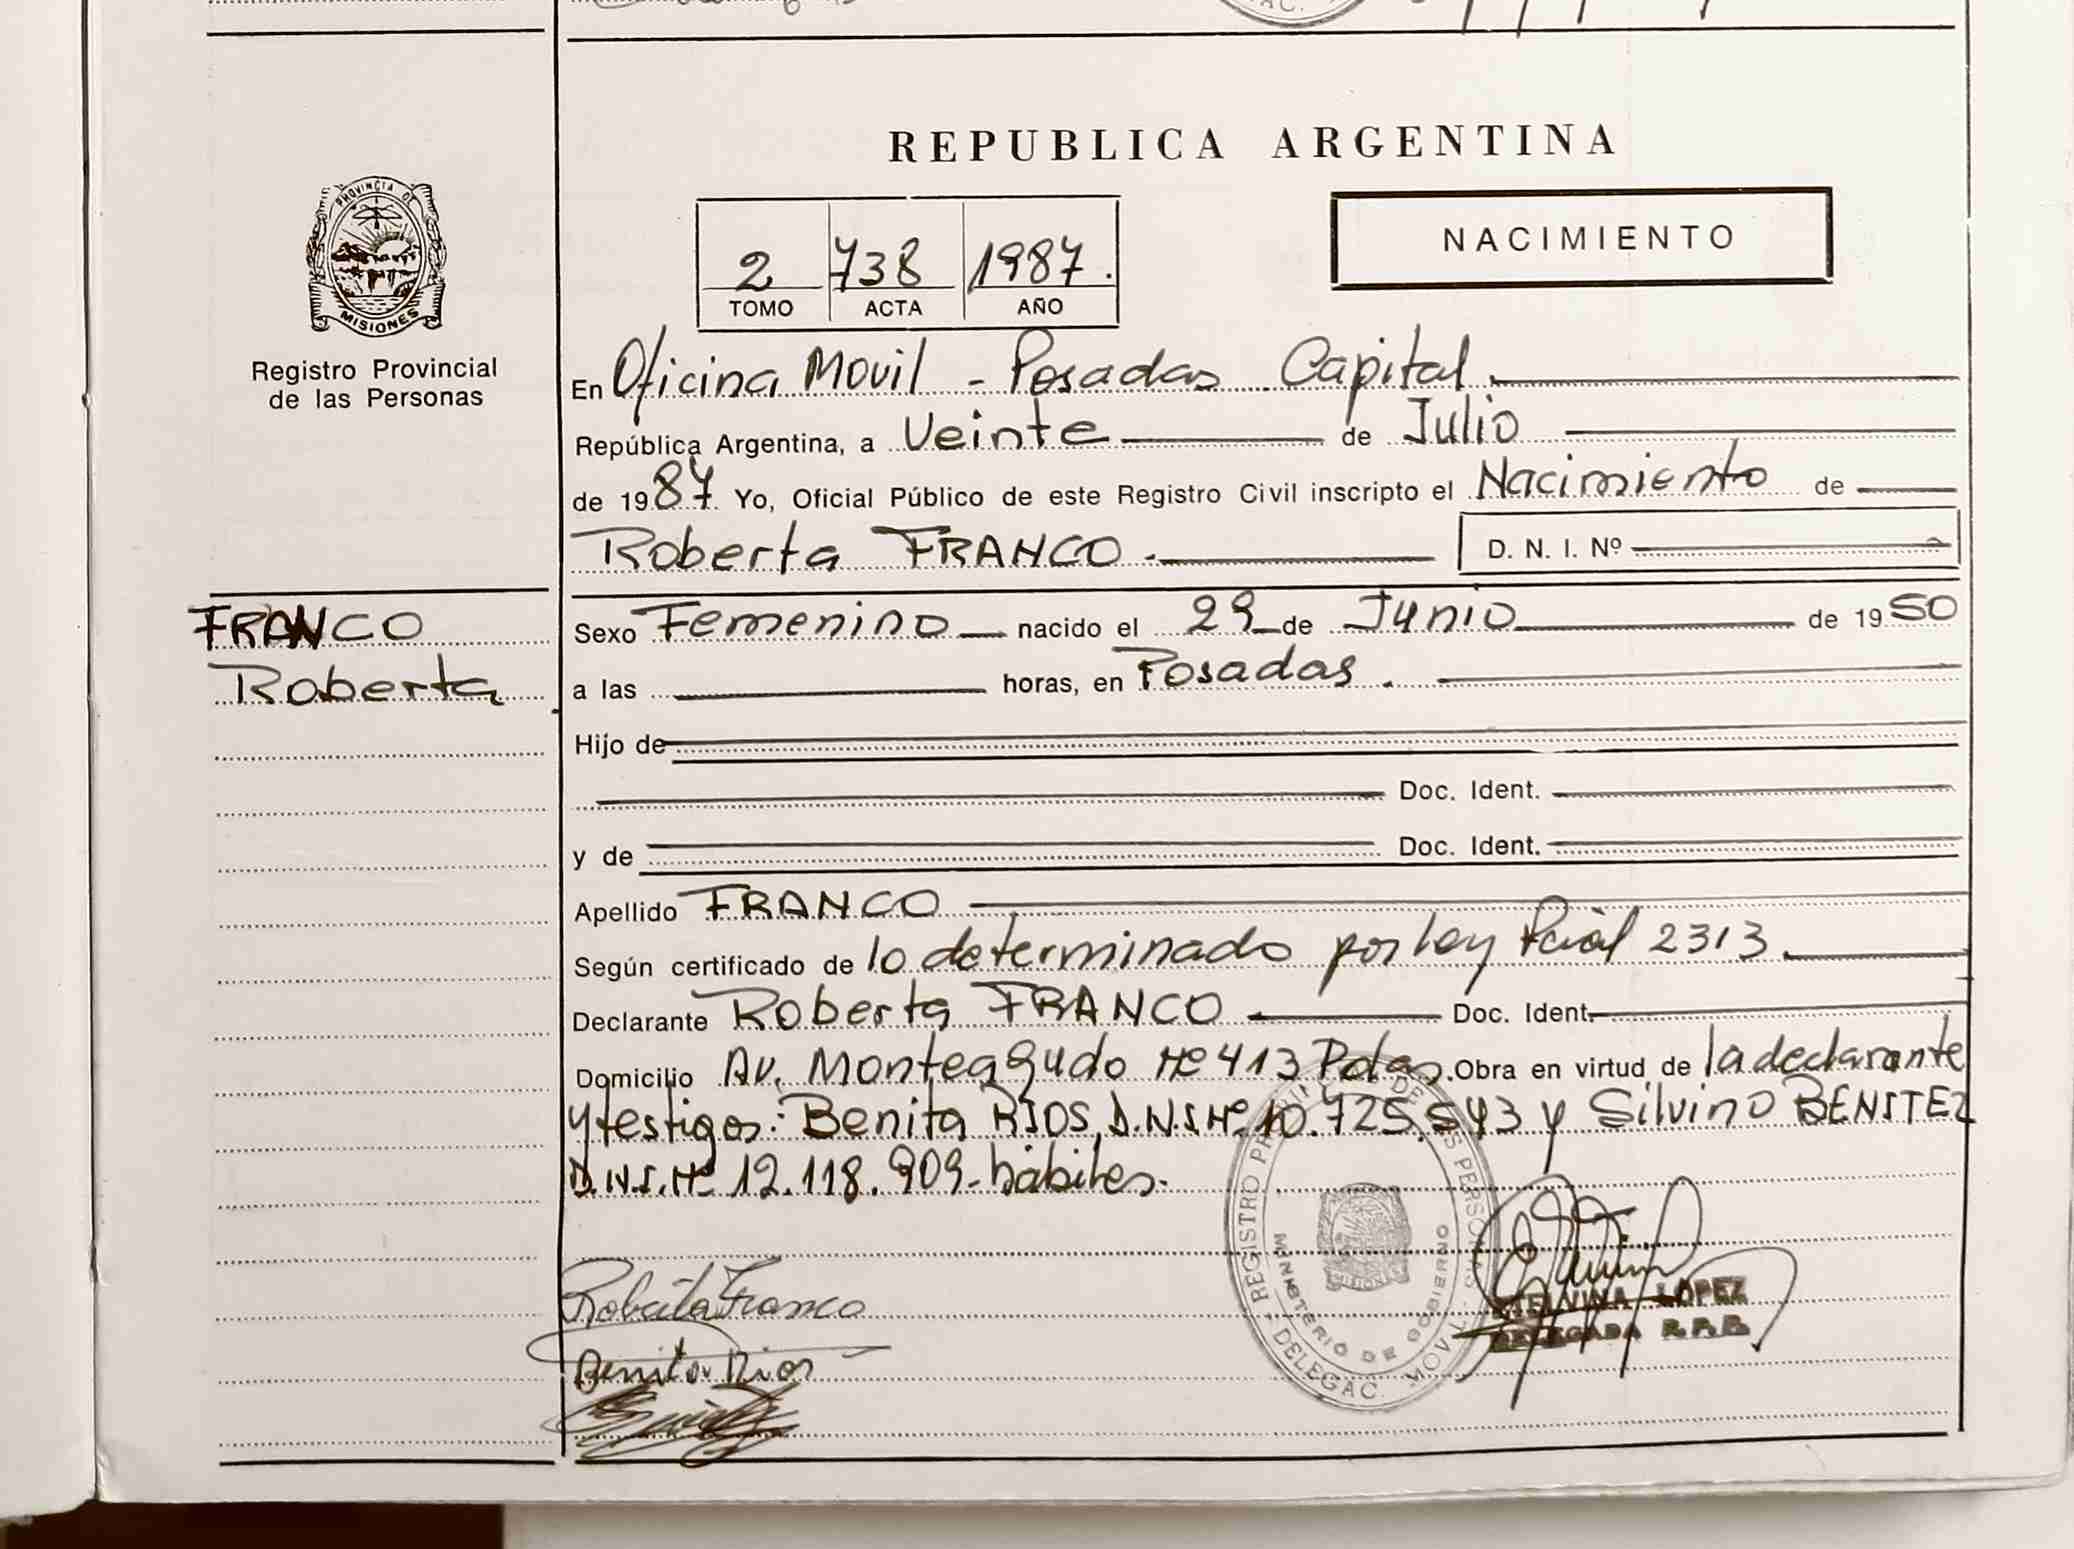 REPUBLICA ARGENTINA
PROVINCIA DE
MISIONES
Registro Provincial
de las Personas
2 738 1987.
TOMO ACTA AÑO
NACIMIENTO
En Oficina Movil - Posadas Capital.
República Argentina, a Veinte de Julio
de 1987. Yo, Oficial Público de este Registro Civil inscripto el Nacimiento de
Roberta FRANCO.- D. N. I. Nº
FRANCO
Roberta
Sexo Femenino nacido el 29 de Junio de 1950
a las horas, en Posadas.
Hijo de
Doc. Ident.
y de Doc. Ident.
Apellido FRANCO
Según certificado de lo determinado por Ley Pcial 2313.
Declarante Roberta FRANCO Doc. Ident.
Domicilio Av. Monteagudo Nº 413 Pdas. Obra en virtud de la declarante
y testigos: Benita RIOS, D.N.I Nº 10.725.543 y Silvino BENITEZ
D.N.I. Nº 12.118.909- hábiles.-
Roberta Franco
Benita Rios
REGISTRO PROVINCIAL DE LAS PERSONAS
MINISTERIO DE GOBIERNO
MISIONES
DELEGAC. MOVIL
LOPEZ
DELEGADA